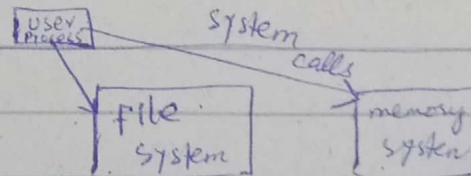 user
process
system
calls
file
system
memory
system